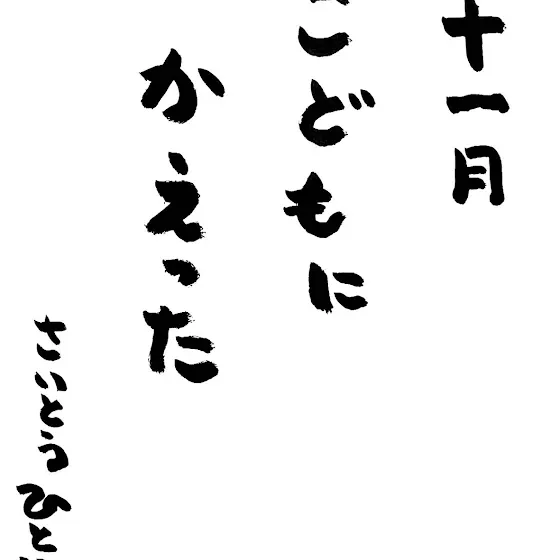 十一月
こどもに
かえった
さいとうひと